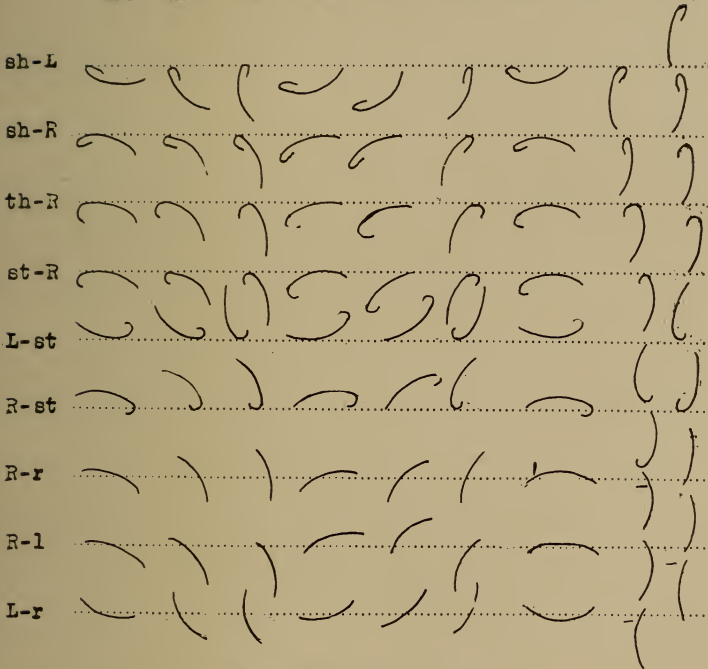 sh-L
sh-R
th-R
st-R
L-st
R-st
R-r
R-l
L-r